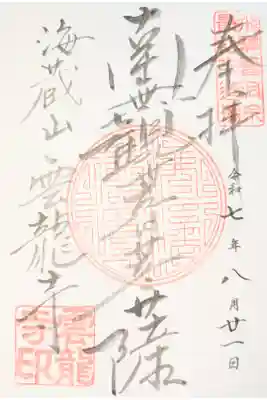 奉拝
令和七年八月廿一日
南無觀世音菩薩
海蔵山雲龍寺
雲龍寺印